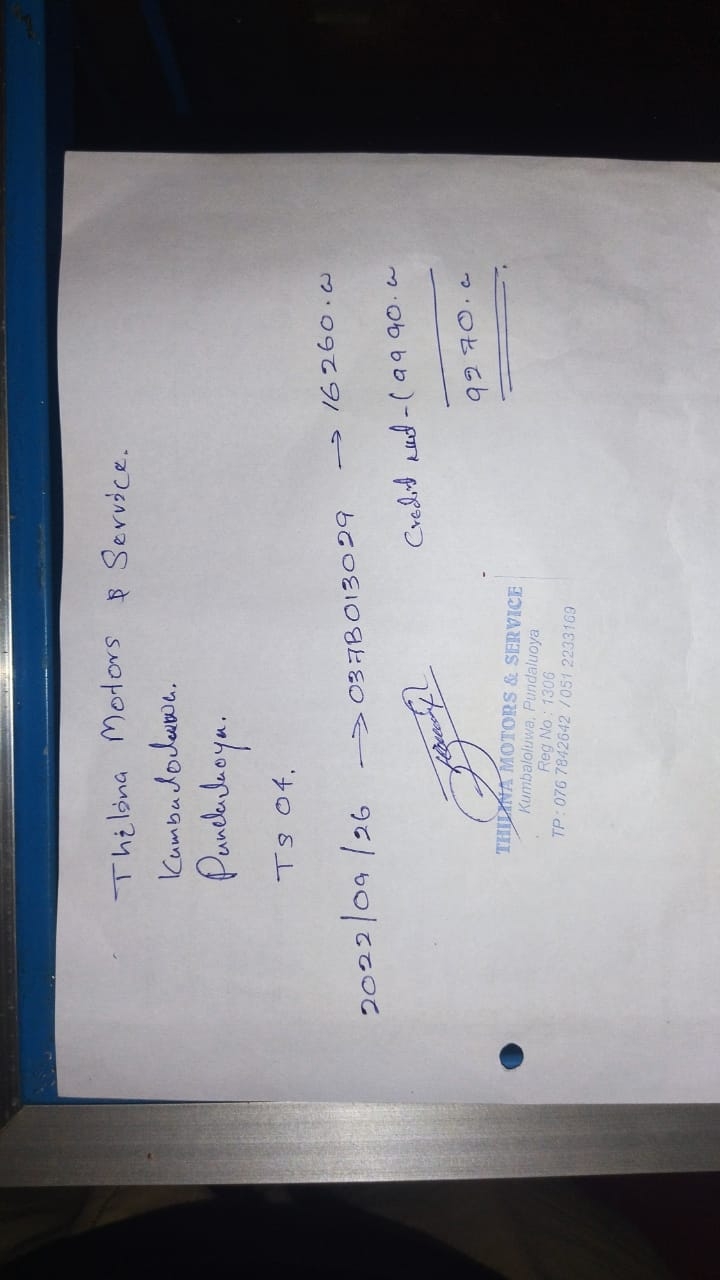 Thilina Motors & Service.
Kumbaloluwa.
Pundaluoya.
TS 04.
2022/09/26 → 037B013029 → 16260.00
Credit - (9990.00
9270.00
THILINA MOTORS & SERVICE
Kumbaloluwa, Pundaluoya
Reg No : 1306
TP : 076 7842642 / 051 2233169